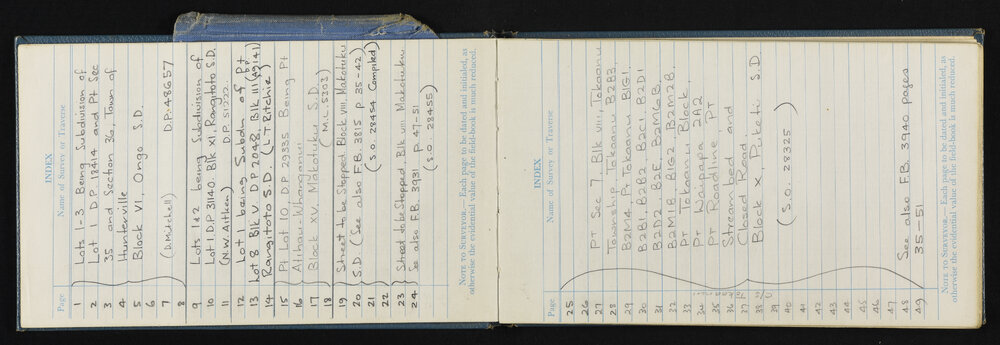 INDEX
Page Name of Survey or Traverse
1 Lots 1-3 Being Subdivision of
2 Lot 1 D.P. 18414 and Pt Sec
3 35 and Section 36, Town of
4 Hunterville
5 Block VI, Ongo S.D.
6
7 (D. Mitchell) D.P. 48657
8
9 Lots 1&2 being Subdivision of
10 Lot 1 D.P. 31140. Blk XI, Rangitoto S.D.
11 (N.W. Aitken) D.P. 51222.
12 Lot 1 being Subdn of Pt
13 Lot 8 Blk V. D.P 2048, Blk III (49141)
14 Rangitoto S.D. (L.T. Ritchie)
15 Pt Lot 10, D.P. 29335 Being Pt
16 Atihau-Whanganui
17 Block XV, Makotuku S.D.
18 (M.L. 5303)
19 Street to be Stopped. Block VIII, Makotuku
20 S.D. (See also F.B. 3815 p 35-42)
21 (S.O. 28454 Compiled)
22
23 Street to be Stopped, Blk VIII Makotuku
24 See also F.B. 3931 p. 47-51
(S.O. 28455)
NOTE TO SURVEYOR.—Each page to be dated and initialed, as
otherwise the evidential value of the field-book is much reduced.
INDEX
Page Name of Survey or Traverse
25
26
27 PT Sec 7, Blk VIII, Tokaanu
28 Township, Tokaanu B2B3,
29 B2M14, Pt Tokaanu B1G1,
30 B2B1, B2B2, B2C1, B2D1
31 B2D2, B2E, B2M6B,
32 B2M1B B1G2 B2M2B
33 PT Tokaanu Block,
34 PT Waipapa 2A2
35 PT Roadline, PT
36 Streambed and
37 Closed Road.
38 Block X Puketi S.D
39
40 (S.O. 28325)
41
42
43
44
45
46
47
48 See also F.B. 3940 pages
49 35-51
NOTE TO SURVEYOR.—Each page to be dated and initialed, as
otherwise the evidential value of the field-book is much reduced.